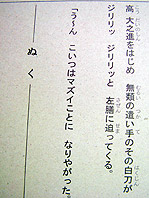 高 大之進をはじめ 無類の遣い手のその白刃が
ジリリッ ジリリッと 左膳に迫ってくる。
「う〜ん こいつはマズイことに なりやがった。
――ぬく――